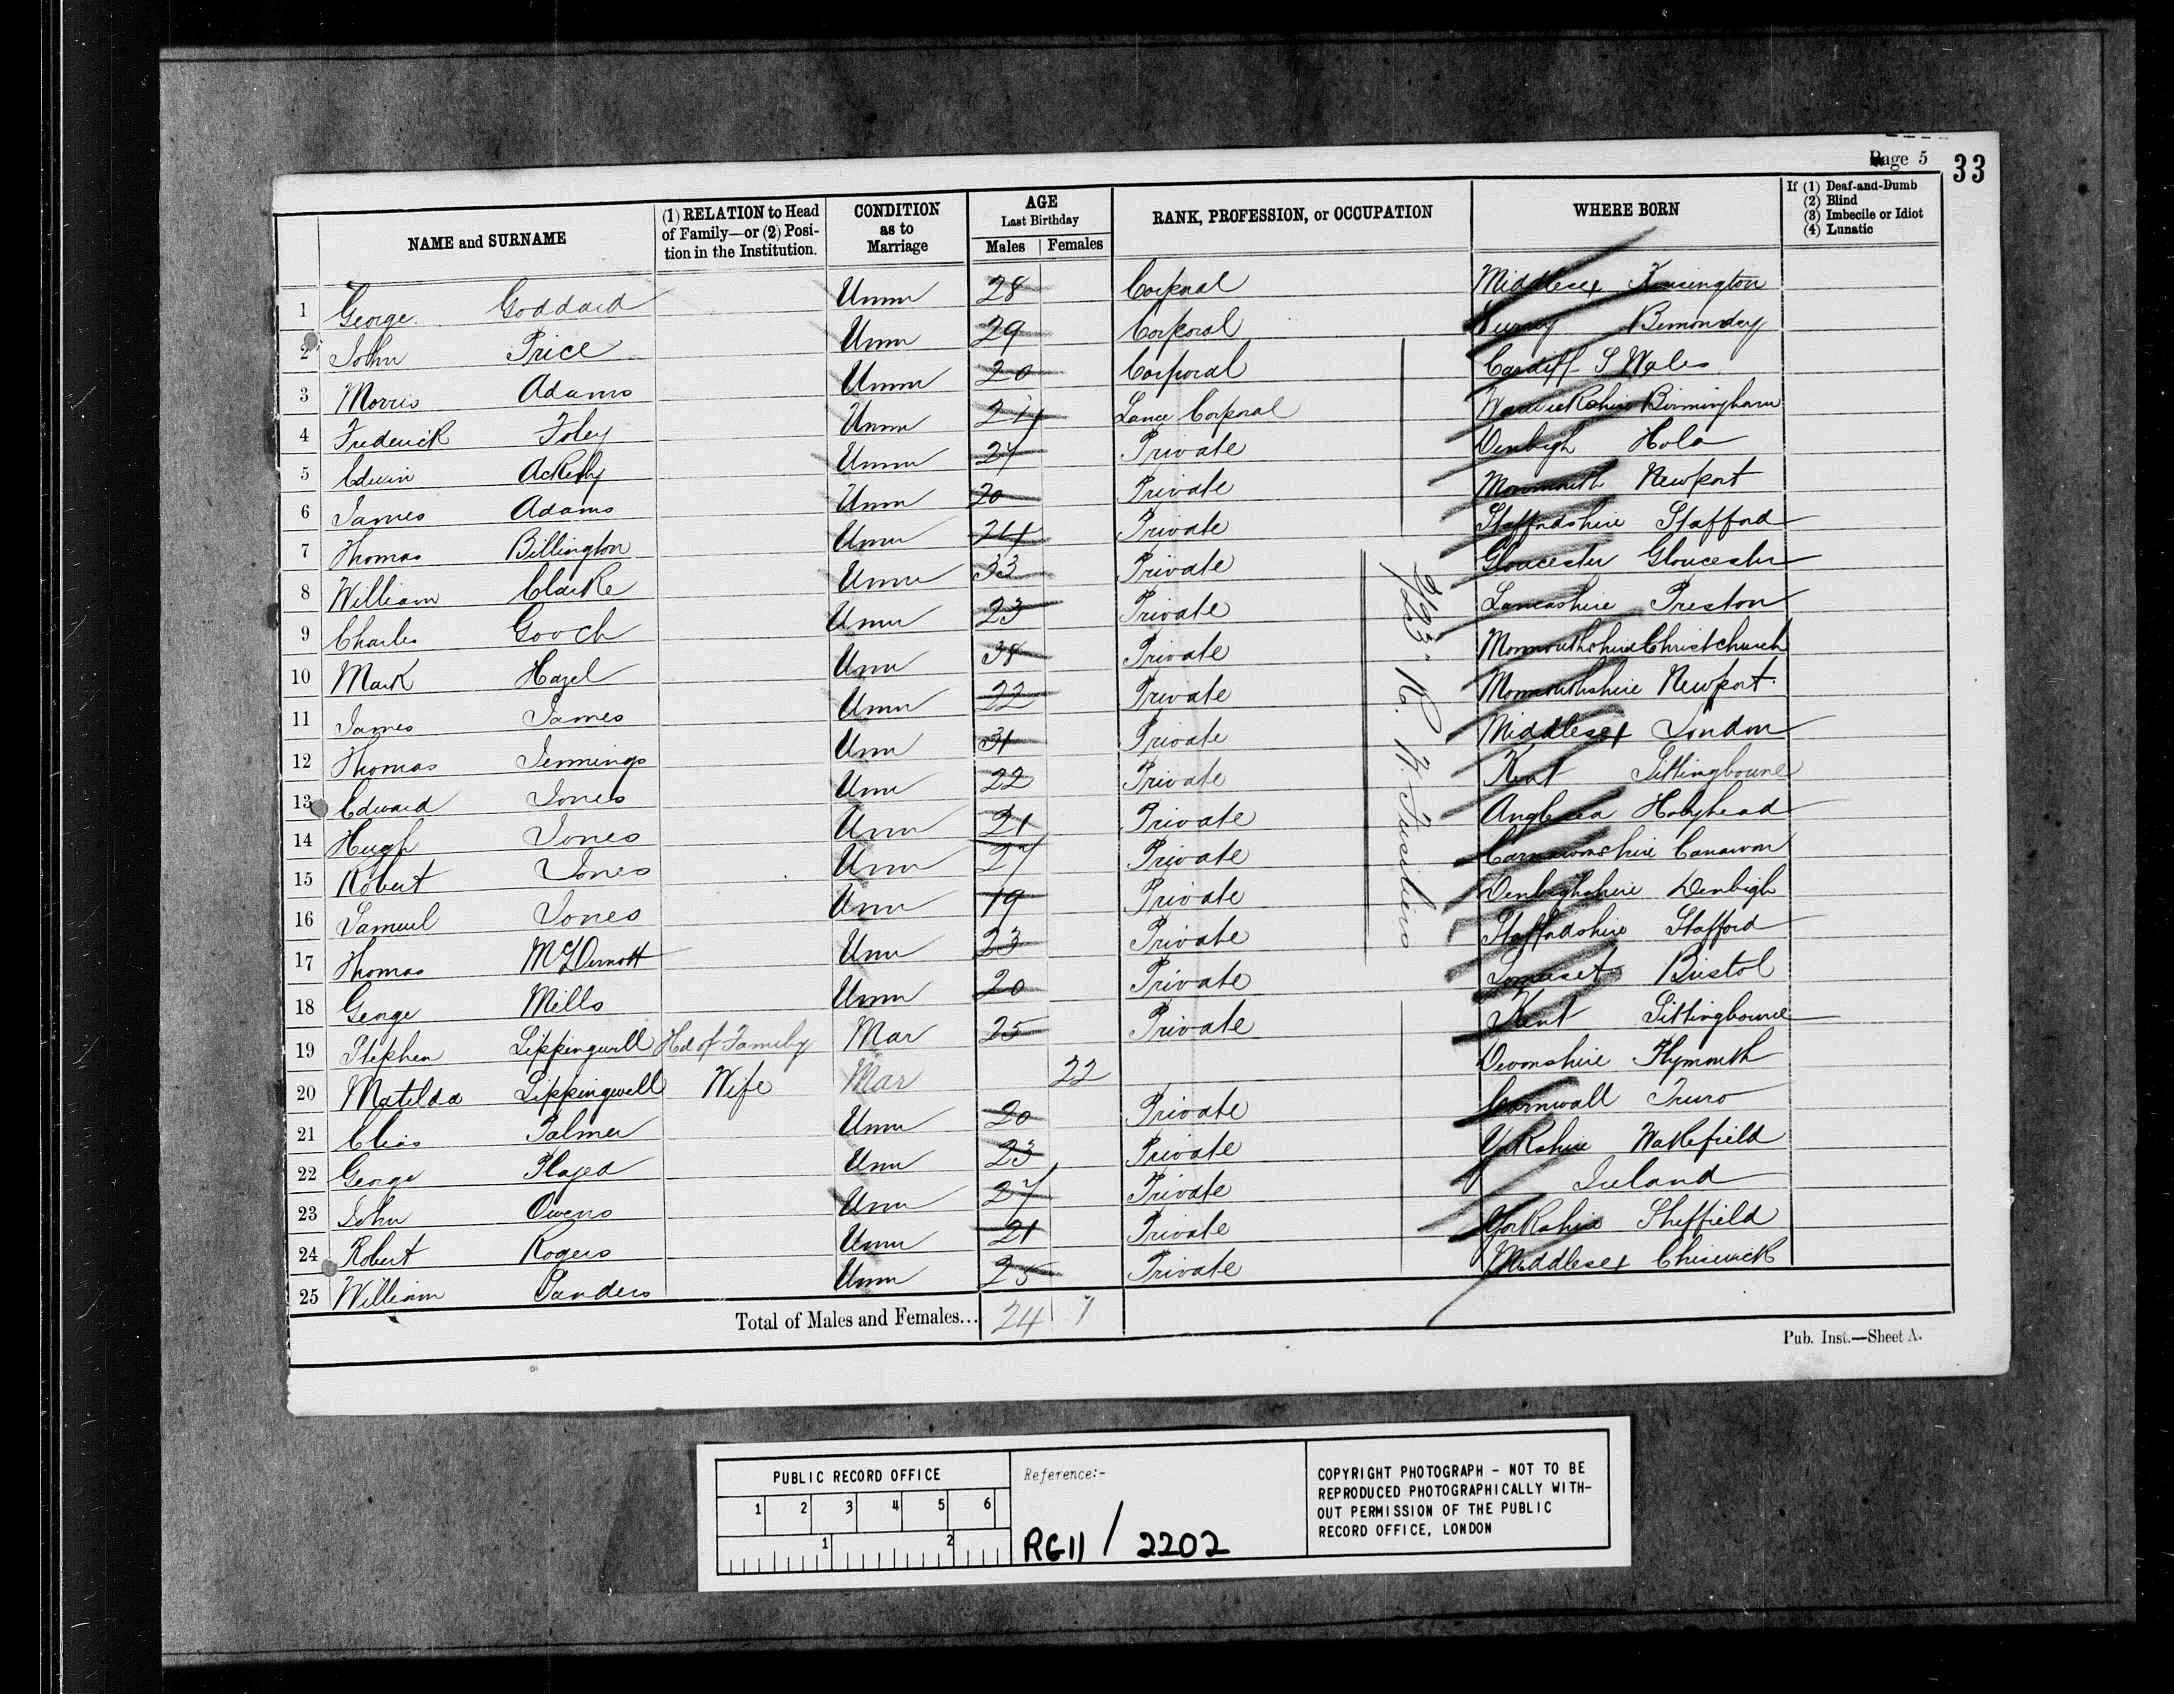 Page 5 33
NAME and SURNAME
(1) RELATION to Head of Family—or (2) Position in the Institution.
CONDITION as to Marriage
AGE Last Birthday
Males Females
RANK, PROFESSION, or OCCUPATION
WHERE BORN
If (1) Deaf-and-Dumb
(2) Blind
(3) Imbecile or Idiot
(4) Lunatic
1 George Goddard Unm 28 Corporal Middlesex Kensington
2 John Price Unm 29 Corporal Surrey Bemondsey
3 Morris Adams Unm 20 Corporal Cardiff S Wales
4 Frederick Foley Unm 24 Lance Corporal Warwickshire Birmingham
5 Edwin Unm 27 Private Denbigh
6 James Adams Unm 20 Private Monmouth Newport
7 Thomas Billington Unm 24 Private Staffordshire Stafford
8 William Clarke Unm 33 Private Gloucester Gloucester
9 Charles Gooch Unm 23 Private Lancashire Preston
10 Mark Hazel Unm 38 Private Monmouthshire Christchurch
11 James James Unm 22 Private Monmouthshire Newport
12 Thomas Jennings Unm 31 Private Middlesex London
13 Edward Jones Unm 22 Private Kent Sittingbourne
14 Hugh Jones Unm 21 Private Anglesea Holyhead
15 Robert Jones Unm 27 Private Carnarvonshire
16 Samuel Jones Unm 19 Private Denbighshire Denbigh
17 Thomas McDermott Unm 23 Private Staffordshire Stafford
18 George Mills Unm 20 Private Somerset Bristol
19 Stephen Lippingwell Hd of Family Mar 25 Private Kent Sittingbourne
20 Matilda Lippingwell Wife Mar 22 Devonshire Plymouth
21 Elias Palmer Unm 20 Private Cornwall Truro
22 George Played Unm 23 Private Yorkshire Wakefield
23 John Owens Unm 27 Private Ireland
24 Robert Rogers Unm 21 Private Yorkshire Sheffield
25 William Sanders Unm 25 Private Middlesex Chiswick
2/23 R. W. Fusiliers
Total of Males and Females... 24 1
Pub. Inst.—Sheet A.
PUBLIC RECORD OFFICE
1 2 3 4 5 6
1 2
Reference:-
RG11 / 2202
COPYRIGHT PHOTOGRAPH - NOT TO BE
REPRODUCED PHOTOGRAPHICALLY WITH-
OUT PERMISSION OF THE PUBLIC
RECORD OFFICE, LONDON